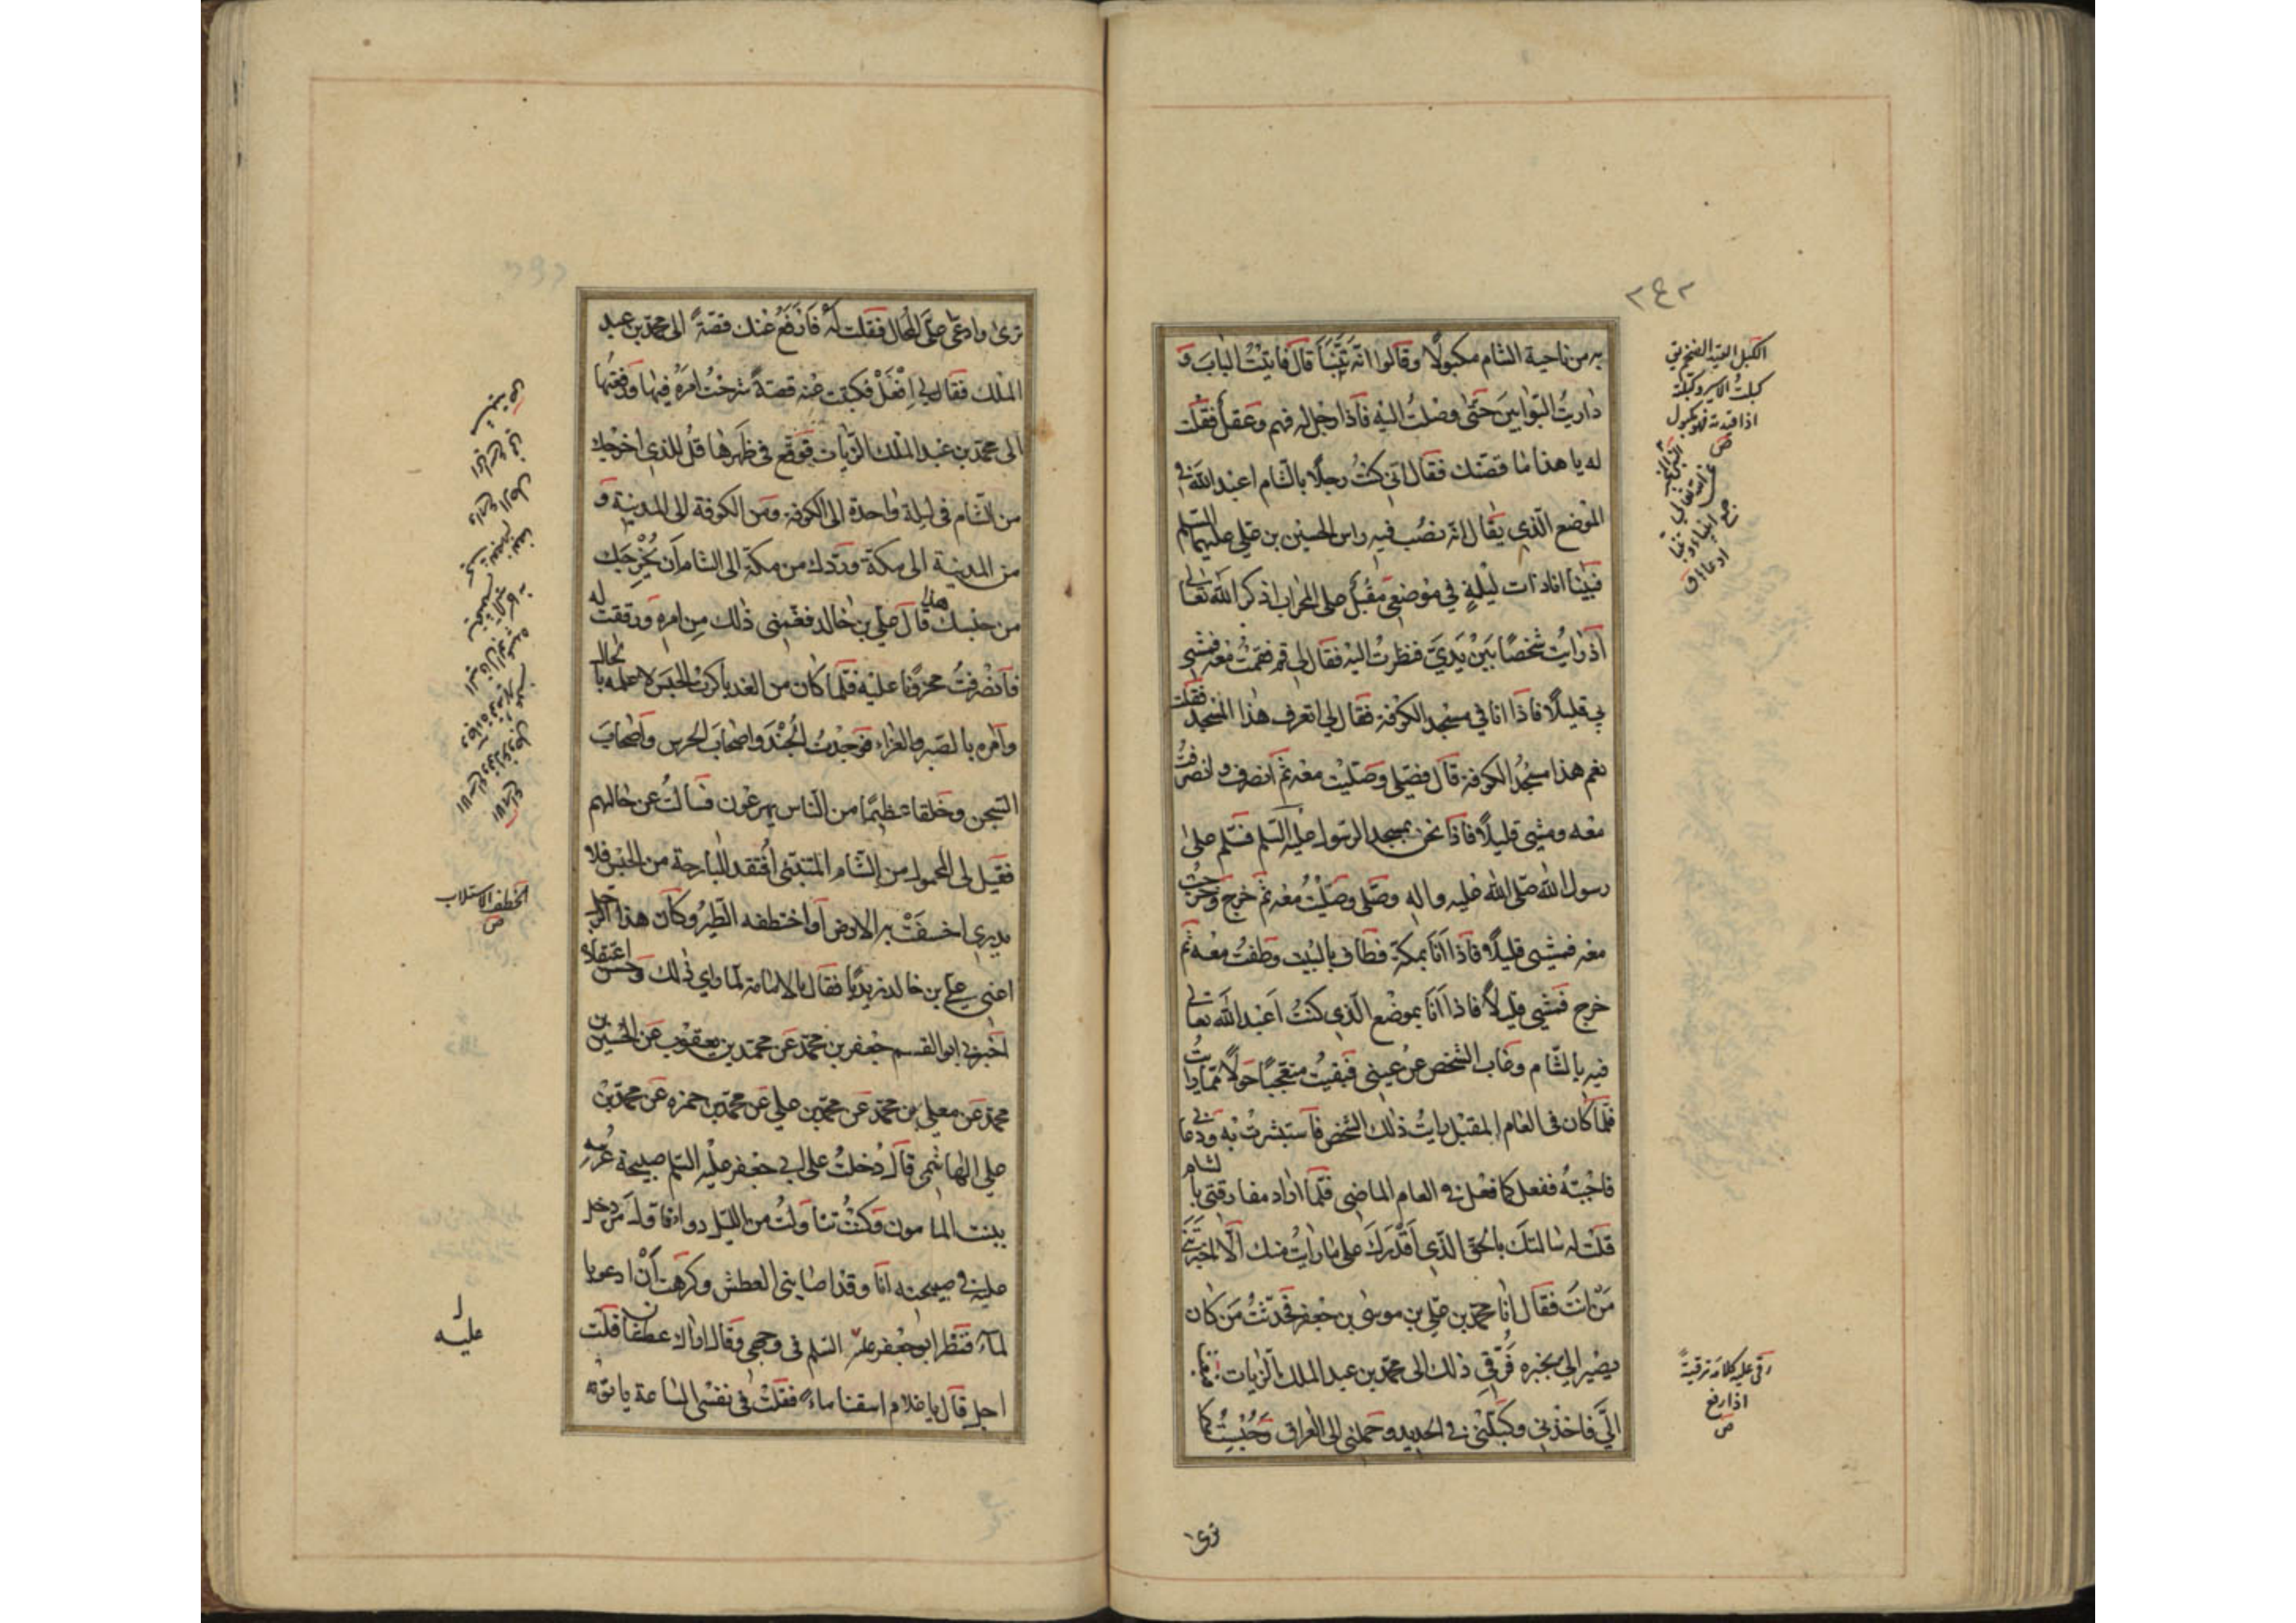 ٢٤٢
به من ناحية الشام مكبولًا وقالوا انّه تَنَبَّأَ قال فاتيتُ الباب و
داريتُ البوّابين حتّى وصلتُ اليه فاذا رجل له فهم وعقل فقلت
له يا هذا ما قصّتك فقال انّي كنتُ رجلًا بالشام اعبد الله في
الموضع الّذي يقال انّه نصب فيه راس الحسين بن علي عليهما السلم
فبينا انا ذات ليلةٍ في موضعي مقبل على المحراب اذكر الله تعالى
اذ رايتُ شخصًا بين يديّ فنظرت اليه فقال لي قم فقمتُ معه فمشى
بي قليلًا فاذا انا في مسجد الكوفة فقال لي اتعرف هذا المسجد فقلت
نعم هذا مسجدُ الكوفة قال فصلّى وصلّيت معه ثمّ انصرف وانصرفتُ
معه ومشى قليلًا فاذا نحن بمسجد الرسول عليه السلم فسلّم على
رسول الله صلّى الله عليه واله وصلّى وصلّيتُ معه ثم خرج وخرجتُ
معه فمشى قليلًا فاذا انا بمكة فطاف بالبيت وطفتُ معه ثم
خرج فمشى قليلًا فاذا انا بموضع الّذي كنتُ اعبد الله تعالى
فيه بالشام وغاب الشخص عن عيني فبقيتُ متعجّبًا حولًا ممّا رايتُ
فلمّا كان في العام المقبل رايتُ ذلك الشخص فاستبشرت به ودعاني
فاجبتُه ففعل كما فعل في العام الماضي فلمّا اراد مفارقتي بالشام
قلت له سالتك بالحقّ الّذي اقدرك على ما رايتُ منك الّا اخبرتني
مَن انت فقال انا محمّد بن علي بن موسى بن جعفر فحدّثتُ مَن كان
يصير اليّ بخبره فرُقّي ذلك الى محمّد بن عبد الملك الزيات فبعث
اليّ فاخذني وكبّلني في الحديد وحملني الى العراق وحُبستُ كما
ترى
الكبل القيد الضخم يق
كبلتُ الاسير وكبّلته
اذا قيدته فهو مكبول
ص
رقى عليه كلاما ترقيةً
اذا رفع
ص
ترى وادعى علىّ المحال فقلت له فارفع عنك قصّةً الى محمّد بن عبد
الملك فقال لي اِفْعَلْ فكتبت عنه قصةً شرحتُ امره فيها ورفعتها
الى محمّد بن عبد الملك الزيات فوقّع في ظهرها قُل للذي اخرجك
من الشام في ليلة واحدة الى الكوفة ومن الكوفة الى المدينة و
من المدينة الى مكة وردّك من مكة الى الشام أن يُخْرِجَك
من حبسك هذا قال علي بن خالد فغمّني ذلك من امره ورققت له
فانصرفتُ محزونًا عليه فلمّا كان من الغد باكرتُ الحبس لاعلمه بالحال
وآمره بالصبر والعزاء فوجدتُ الجُنْدَ واصحاب الحرس واصحاب
السجن وخلقا عظيمًا من الناس يهرعون فسالتُ عن حالهم
فقيل لي المحمول من الشام المتنبّئ اُفتقد البارحة من الحبس فلا
يدرى اخسفَتْ به الارض او اختطفه الطيرُ وكان هذا الرجل
اعني علي بن خالد زيديًا فقال بالامامة لمّا راي ذلك وحسن اعتقاده
اخبرني ابو القسم جعفر بن محمّد عن محمّد بن يعقوب عن الحسين بن
محمّد عن معلى بن محمّد عن محمّد بن علي عن محمّد بن حمزه عن محمّد بن
علي الهاشمي قال دخلتُ على ابي جعفر عليه السلم صبيحة عُرسه
ببنت المامون وكنتُ تناولتُ من الليل دواءً فاوّل مَن دخل
عليه في صبيحته انا وقد اصابني العطش وكرهت أنْ ادعو با
لماء فنظر ابو جعفر عليه السلم في وجهي وقال اراك عطشانا قلت
اجل قال يا غلام اسقنا ماءً فقلتُ في نفسي الساعة ياتونه
الخطف الاستلاب
ص
عليه